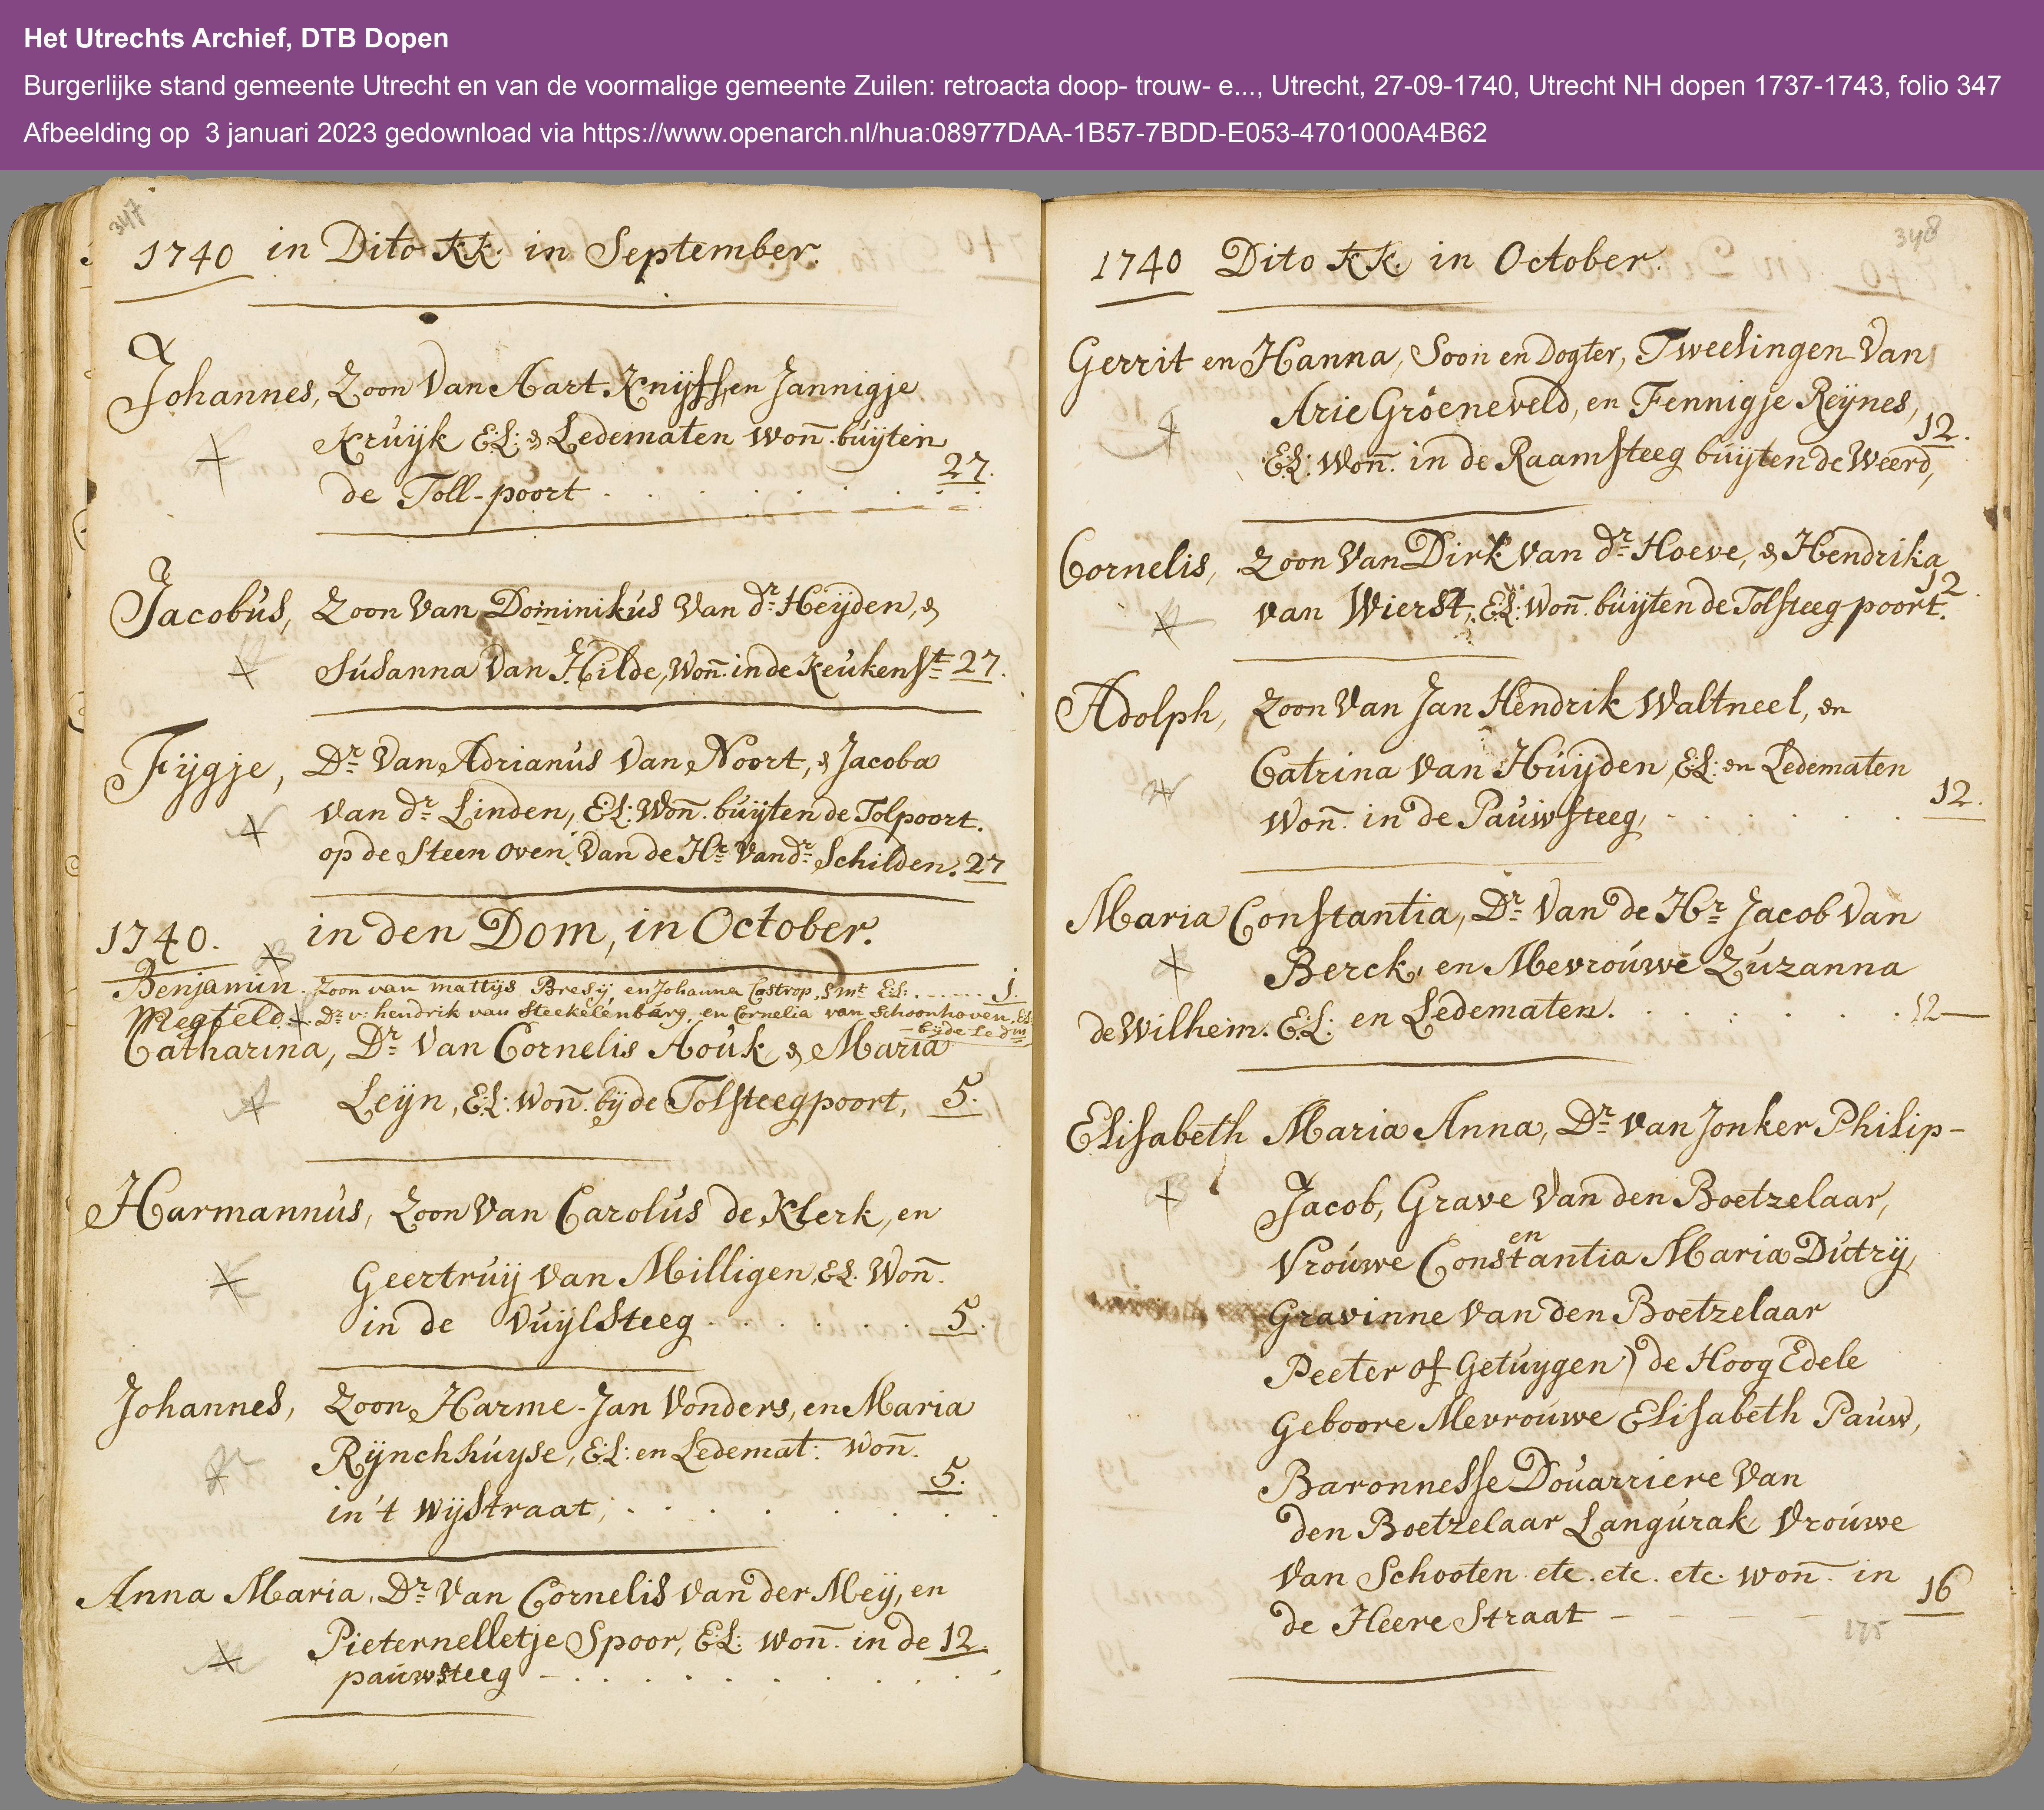 Het Utrechts Archief, DTB Dopen
Burgerlijke stand gemeente Utrecht en van de voormalige gemeente Zuilen: retroacta doop- trouw- e..., Utrecht, 27-09-1740, Utrecht NH dopen 1737-1743, folio 347
Afbeelding op 3 januari 2023 gedownload via https://www.openarch.nl/hua:08977DAA-1B57-7BDD-E053-4701000A4B62
347
1740 in Dito KK. in September.
Johannes, Zoon Van Aart Knijff, en Jannigje
Kruijk E:L: & Ledematen Won̅. buijten
de Toll-poort . . . . . . . 27.
Jacobus, Zoon Van Dominikus Van dr. Heijden, &
Susanna Van Hilde, Won̅. in de Keukenst. 27.
Fijgje, Dr. Van Adrianus Van Noort, & Jacoba
van dr. Linden, E:L: Won̅. buijten de Tolpoort.
op de Steen oven Van de Hr. Van dr. Schilden. 27
1740. in den Dom, in October.
Benjamin. Zoon van mattijs Bresij en Johanna Costrop, Smt. E:L: . . . . . . 1.
Megteld Dr. v: hendrik van Steekelenbúrg, en Cornelia van Schoonhoven, EL
bijde Ledm
Catharina, Dr. Van Cornelis Aouk & Maria
Leijn, E:L: Won̅. bij de Tolsteegpoort, 5.
Harmannus, Zoon Van Carolus de Klerk, en
Geertruij van Milligen E:L. Won̅.
in de Vuijlsteeg . . . . . . 5.
Johannes, Zoon Harme-Jan Vonders, en Maria
Rijnchhuyse, E:L: en Ledemat: Won̅. 5.
in 't Wijstraat, . . . . . . .
Anna Maria, Dr. Van Cornelis Van der Meij, en
Pieternelletje Spoor, E:L: won̅. in de 12.
pauwsteeg - . . . . . . . .
348
1740 Dito KK. in October.
Gerrit en Hanna, Soon en Dogter, Tweelingen Van
Arie Groeneveld, en Fennigje Reijnes,
E:L: Won̅. in de Raamsteeg buijten de Weerd, 12.
Cornelis, Zoon Van Dirk van dr. Hoeve, & Hendrika
van Wierst, E:L: Won̅. buijten de Tolsteeg poort. 12.
Adolph, Zoon Van Jan Hendrik Waltneel, en
Catrina van Huijden E:L: en Ledematen
Won̅. in de Pauwsteeg, . . . . . . 12.
Maria Constantia, Dr. Van de Hr. Jacob Van
Berck, en Mevrouwe Zuzanna
de Wilhem. E:L: en Ledematen. . . . . . . 12
Elisabeth Maria Anna, Dr. van Jonker Philip-
Jacob, Grave Van den Boetzelaar,
en
Vrouwe Constantia Maria Dutrij,
Gravinne Van den Boetzelaar
Peeter of Getuygen) de Hoog Edele
Geboore Mevrouwe Elisabeth Pauw,
Baronnesse Douarriere Van
den Boetzelaar Langurak Vrouwe
Van Schooten etc. etc. etc. won̅. in
de Heere Straat - - - - 16
175